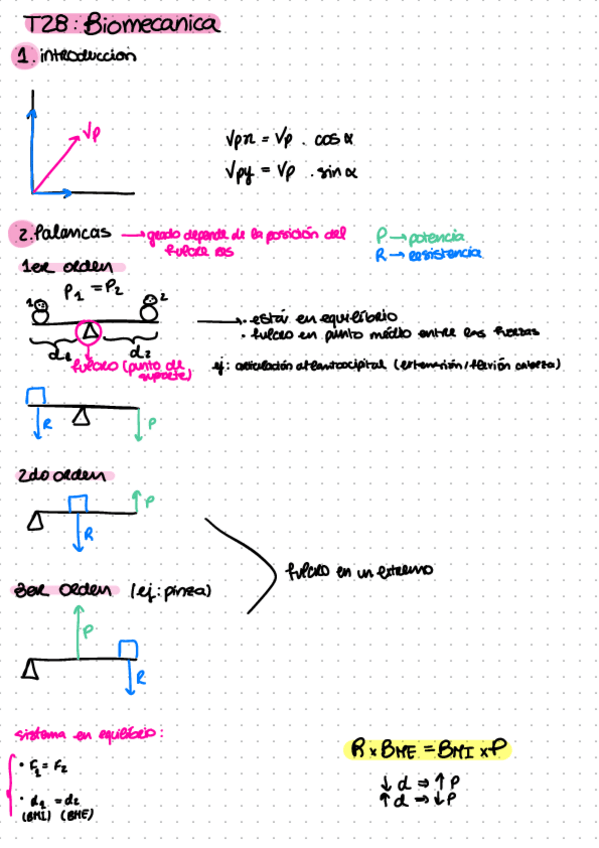 T2B: Biomecanica
1. introduccion
Vp
Vpx = Vp . cos α
Vpy = Vp . sin α
2. Palancas → grado depende de la posición del
fulcro
P → potencia
R → resistencia
1er orden
P1 = P2
1
2
d1
d2
fulcro (punto de
soporte)
→ · está en equilibrio
· fulcro en punto médio entre las fuerzas
ej: articulación atlantooccipital (extensión/flexión cabeza)
R
P
2do orden
P
R
fulcro en un extremo
3er orden (ej: pinza)
P
R
sistema en equilibrio:
· F1 = F2
· d1 = d2
(BMI) (BME)
R x BME = BMI x P
↓ d ⇒ ↑ P
↑ d ⇒ ↓ P